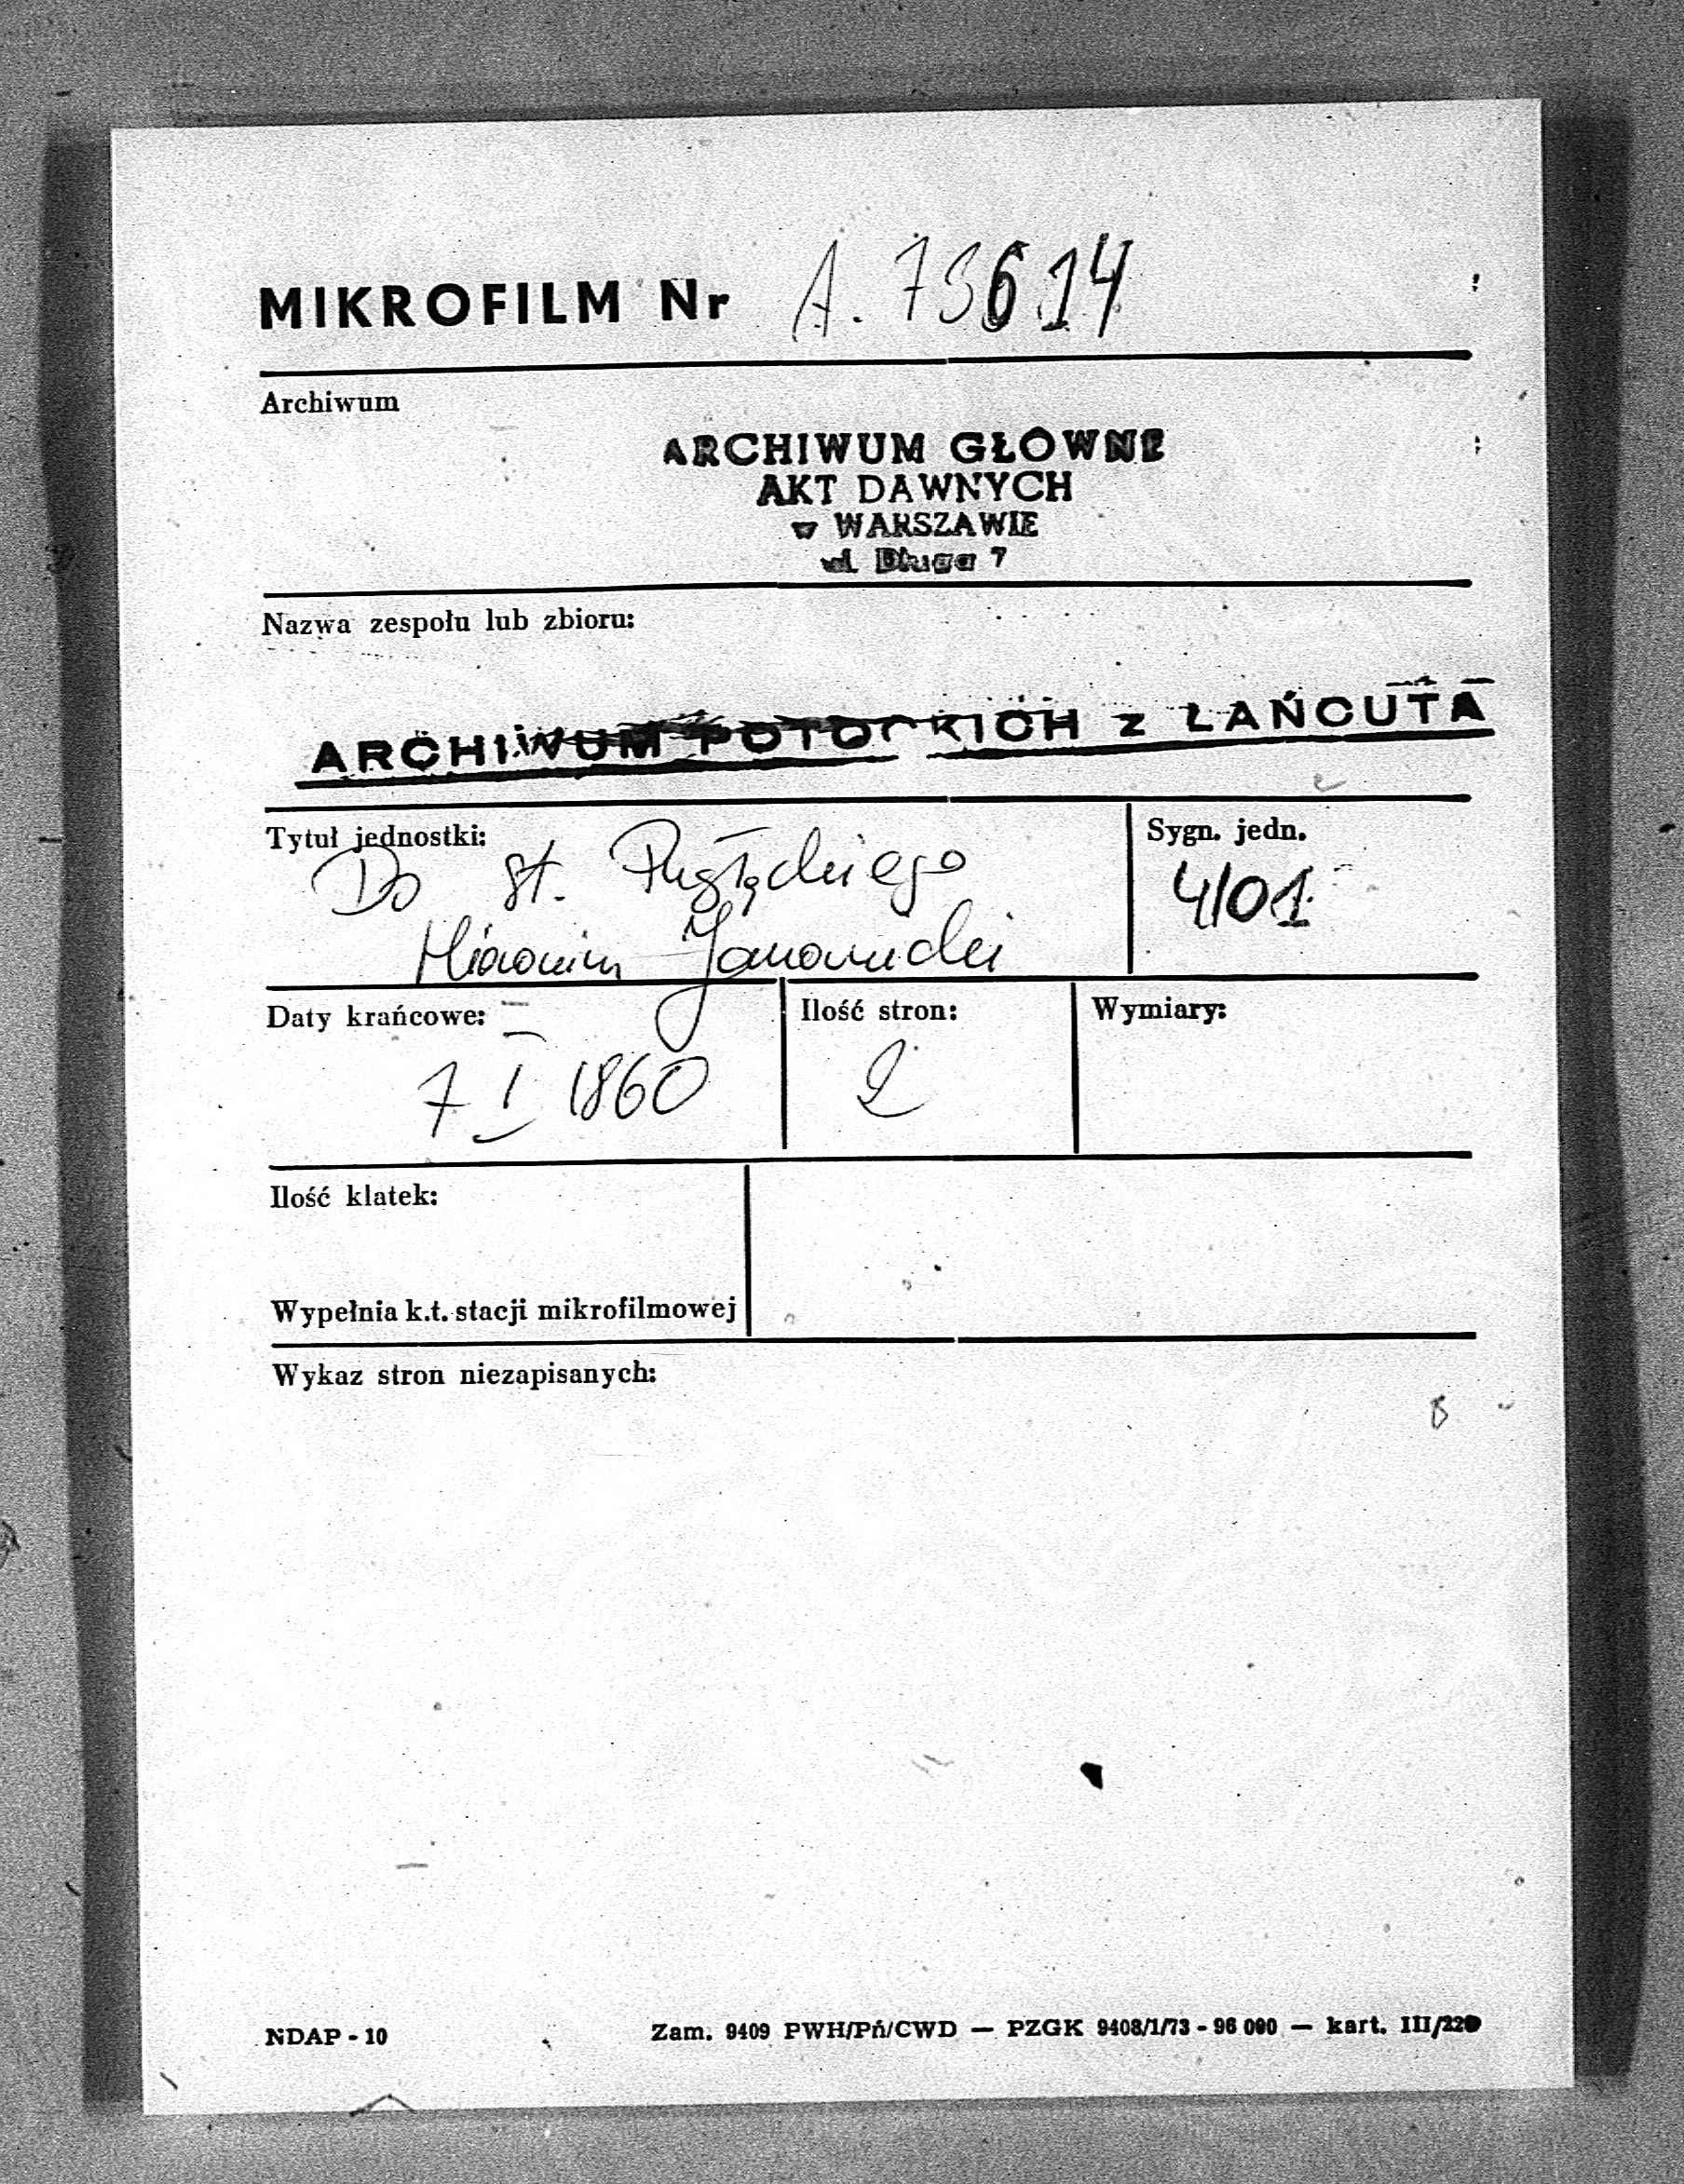 MIKROFILM Nr A. 73614
Archiwum
ARCHIWUM GŁÓWNE
AKT DAWNYCH
w WARSZAWIE
ul. Długa 7
Nazwa zespołu lub zbioru:
ARCHIWUM POTOCKICH z ŁAŃCUTA
Tytuł jednostki:
Do St.
Hieronim
Sygn. jedn.
4/01
Daty krańcowe:
7 I 1860
Ilość stron:
2
Wymiary:
Ilość klatek:
Wypełnia k.t. stacji mikrofilmowej
Wykaz stron niezapisanych:
NDAP - 10
Zam. 9409 PWH/Pń/CWD — PZGK 9408/1/73 - 96 000 — kart. III/220